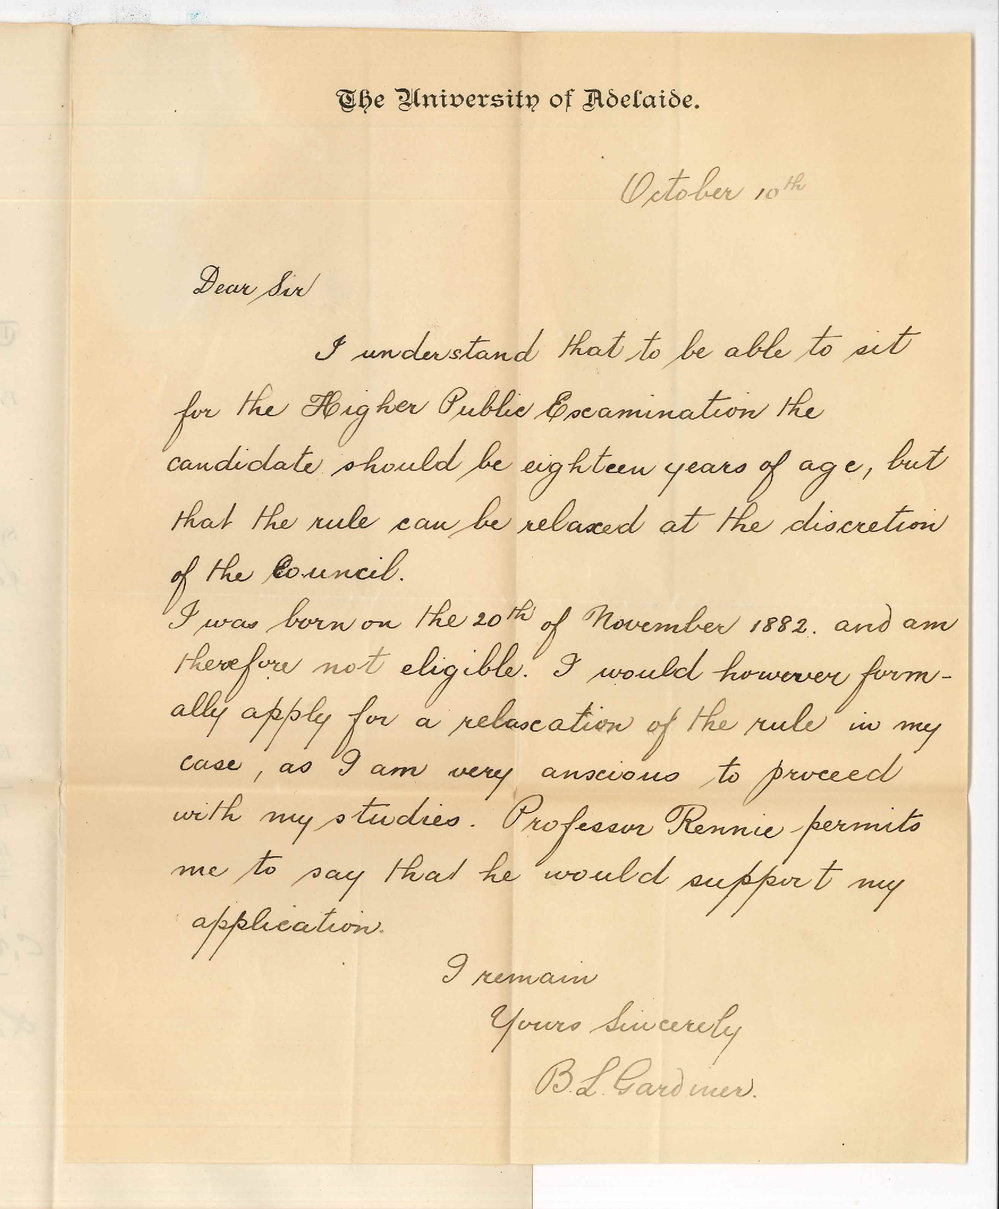 The University of Adelaide.
October 10th
Dear Sir
I understand that to be able to sit
for the Higher Public Examination the
candidate should be eighteen years of age, but
that the rule can be relaxed at the discretion
of the Council.
I was born on the 20th of November 1882. and am
therefore not eligible. I would however form-
ally apply for a relaxation of the rule in my
case, as I am very anxious to proceed
with my studies. Professor Rennie permits
me to say that he would support my
application.
I remain
Yours Sincerely
B. L. Gardiner.